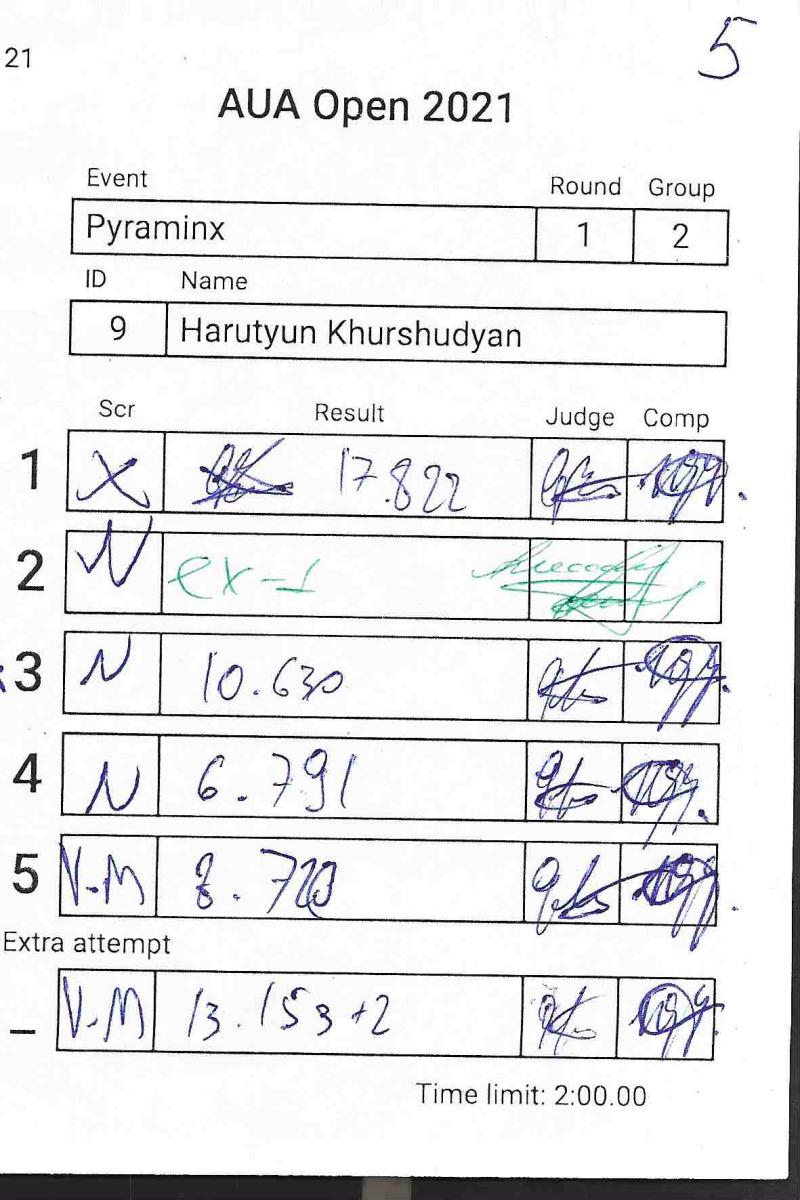 21
5
AUA Open 2021
Event Round Group
Pyraminx 1 2
ID Name
9 Harutyun Khurshudyan
Scr Result Judge Comp
1 X 17.822
2 N ex-1
3 N 10.630
4 N 6.791
5 V.M 8.720
Extra attempt
_ V.M 13.153+2
Time limit: 2:00.00